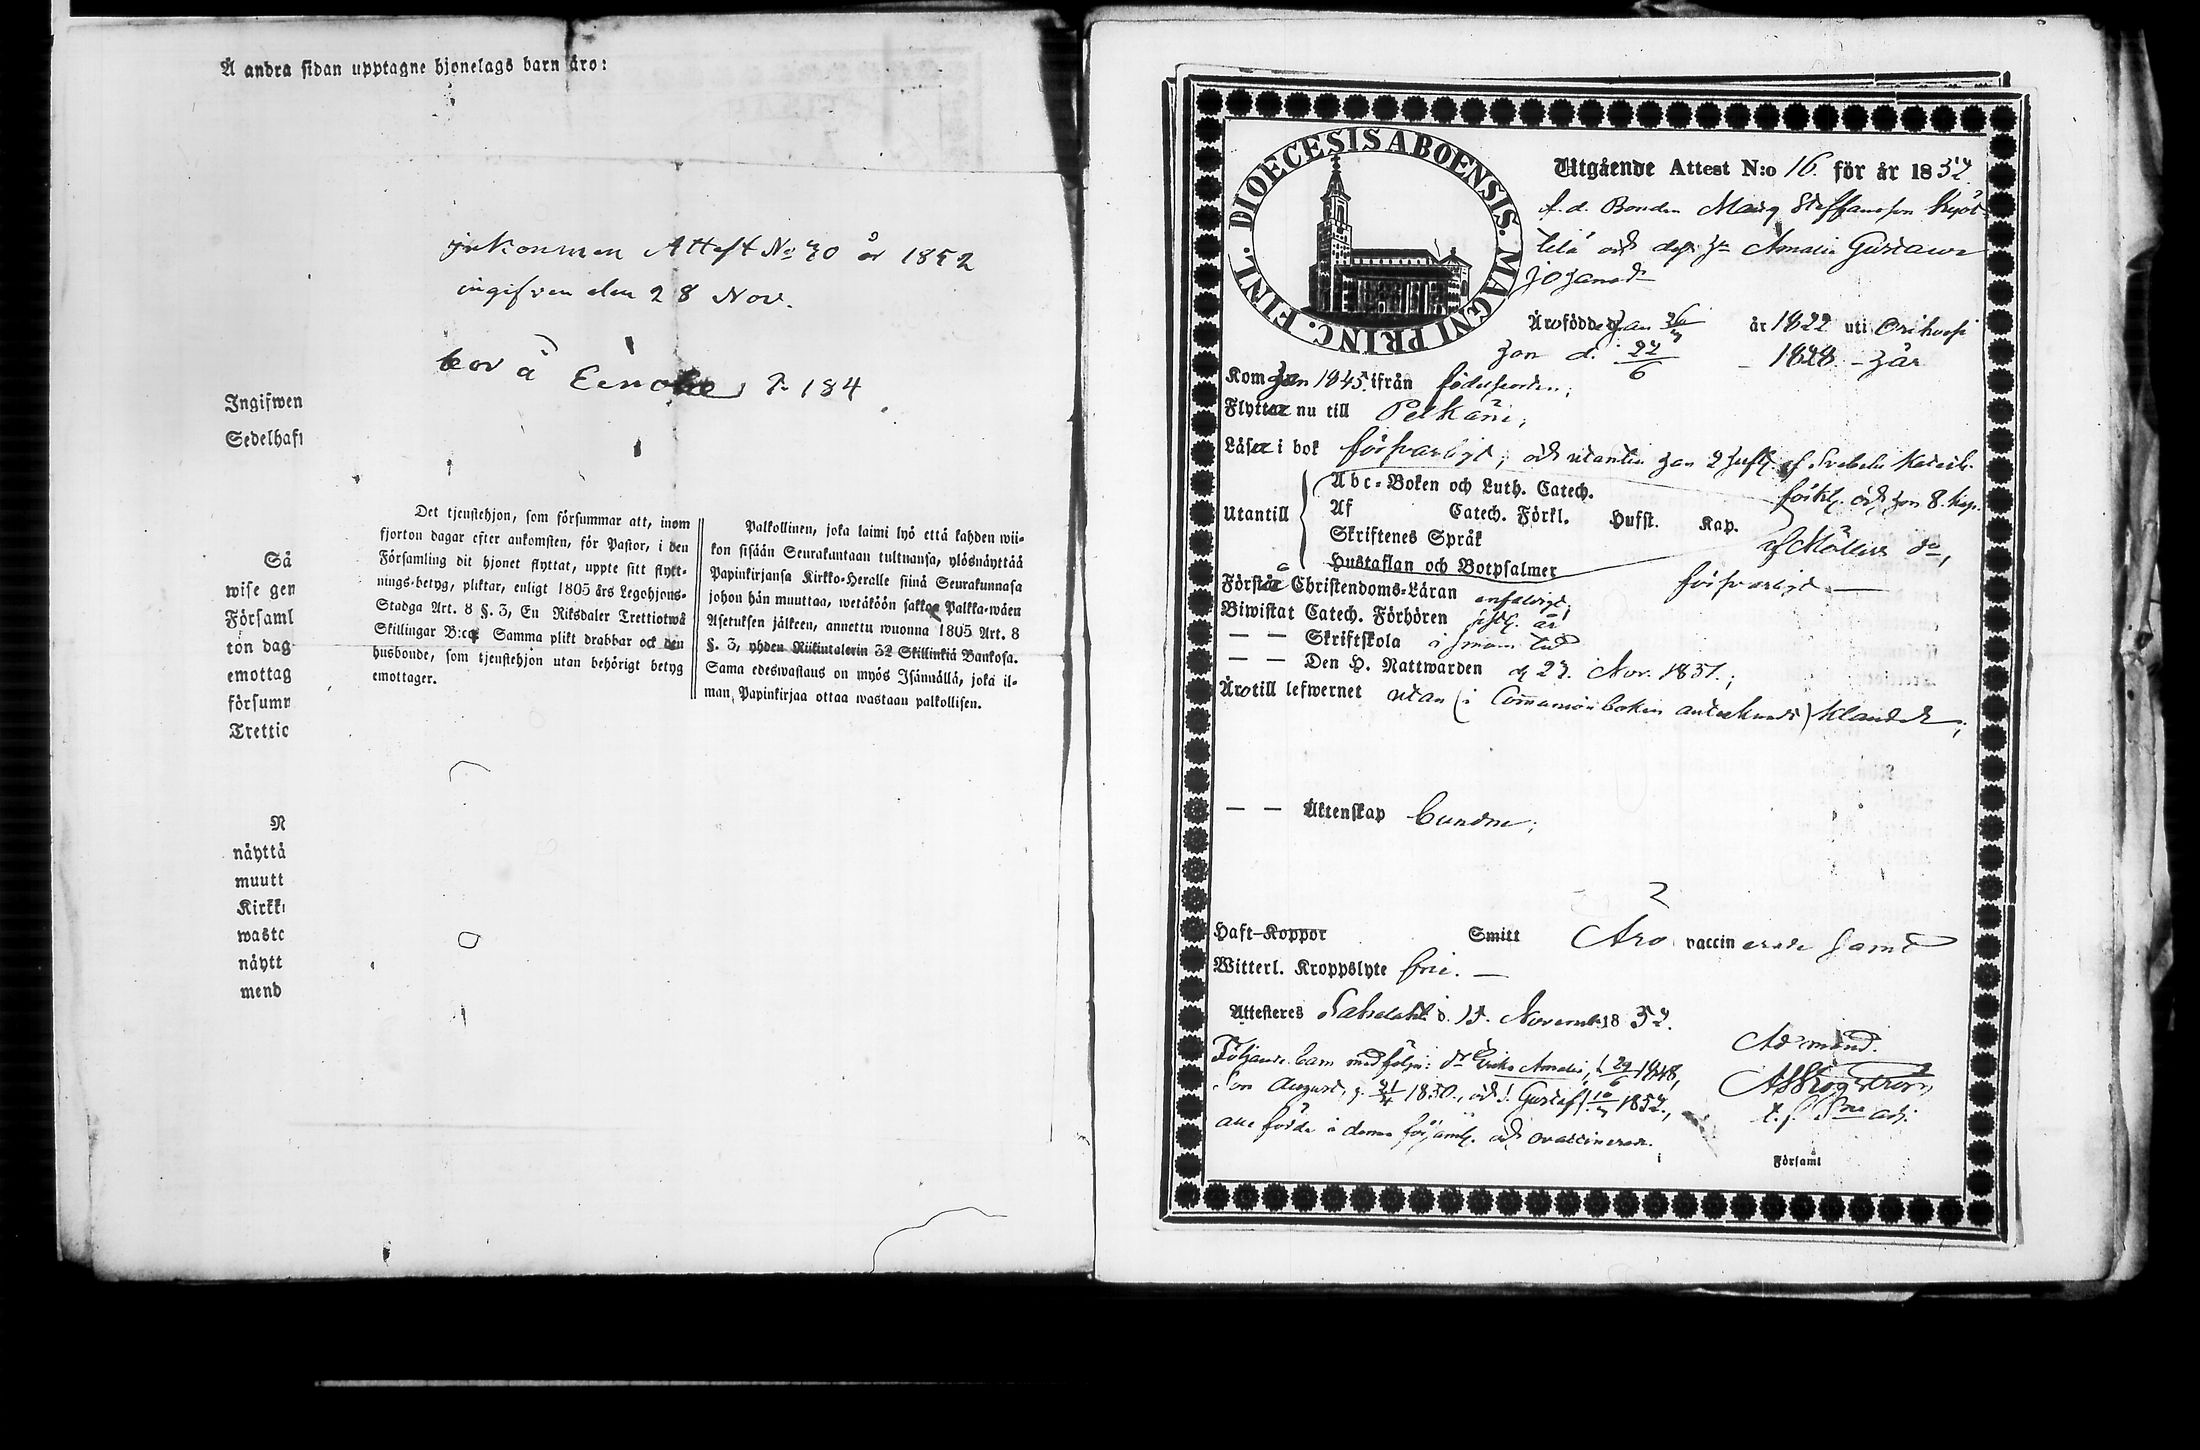 Å andra sidan upptagne hjonelags barn äro:
Inkommen Attest No 70 år 1852
ingifven den 28 Nov.
bor å P. 184
Ingifwen
Sedelhaft
Så
wise gen
Församl
ton dag
emottag
försumr
Trettio
N
näyttä
muutt
Kirkk
waste
näytt
mend
Det tjenstehjon, som försummar att, inom
fjorton dagar efter ankomsten, för Pastor, i den
Församling dit hjonet flyttat, uppte sitt flytt-
nings-betyg, pliktar, enligt 1805 års Legohjons-
Stadga Art. 8 §. 3, En Riksdaler Trettiotwå
Skillingar B:co. Samma plikt drabbar ock den
husbonde, som tjenstehjon utan behörigt betyg
emottager.
Palkollinen, joka laimi lyö että kahden wii-
kon sisään Seurakuntaan tultuansa, ylösnäyttää
Papinkirjansa Kirkko-Heralle siinä Seurakunnasa
johon hän muuttaa, wetäköön sakkoa Palkka-wäen
Asetuksen jälkeen, annettu wuonna 1805 Art. 8
§. 3, yhden Riikintalerin 32 Skillinkiä Bankosa.
Sama edeswastaus on myös Isännällä, joka il-
man Papinkirjaa ottaa wastaan palkollisen.
DIOECESIS ABOENSIS. MAGNI PRINC. FINL.
Utgående Attest N:o 16. för år 1852
f. d. Bonden Steffansson
och dess h:u Amalia Gustava
Äro födde han 26 år 1822 uti Orihvesi
hon d. 27/6 – 1828 – här
Kom han 1845 ifrån födelseorten;
Flytta nu till Pelkäne;
Läsa i bok försvarligt, och utantill han 2 hufst. af Svebelii Katech.
förkl. och hon 8. kap.
Utantill
Abc-Boken och Luth. Catech.
Af Catech. Förkl. Hufst. Kap.
af Möllers d:o,
Skriftenes Språk
Hustaflan och Botpsalmer
försvarligt —
Förstå Christendoms-Läran enfaldigt;
Biwistat Catech. Förhören sistl. år
— — Skriftskola i sinom tid
— — Den H. Nattwarden d. 27. Nov. 1851.;
Äro till lefwernet utan (i Communionboken antecknadt) klander;
— — Äktenskap bundne;
Haft Koppor Smitt Äro vaccinerade samt
Witterl. Kroppslyte frie. —
Attesteres Sahalahti d. 15. November 1852.
Följande barn medfölja: d:r Erika Amalia, f. 29/6 1848,
Son August, f. 21/4 1850., och S. Gustaf f. 10/7 1852.,
alla födde i denna församl. och ovaccinerade.
Ad mand.
t. f. adj.
i Församl